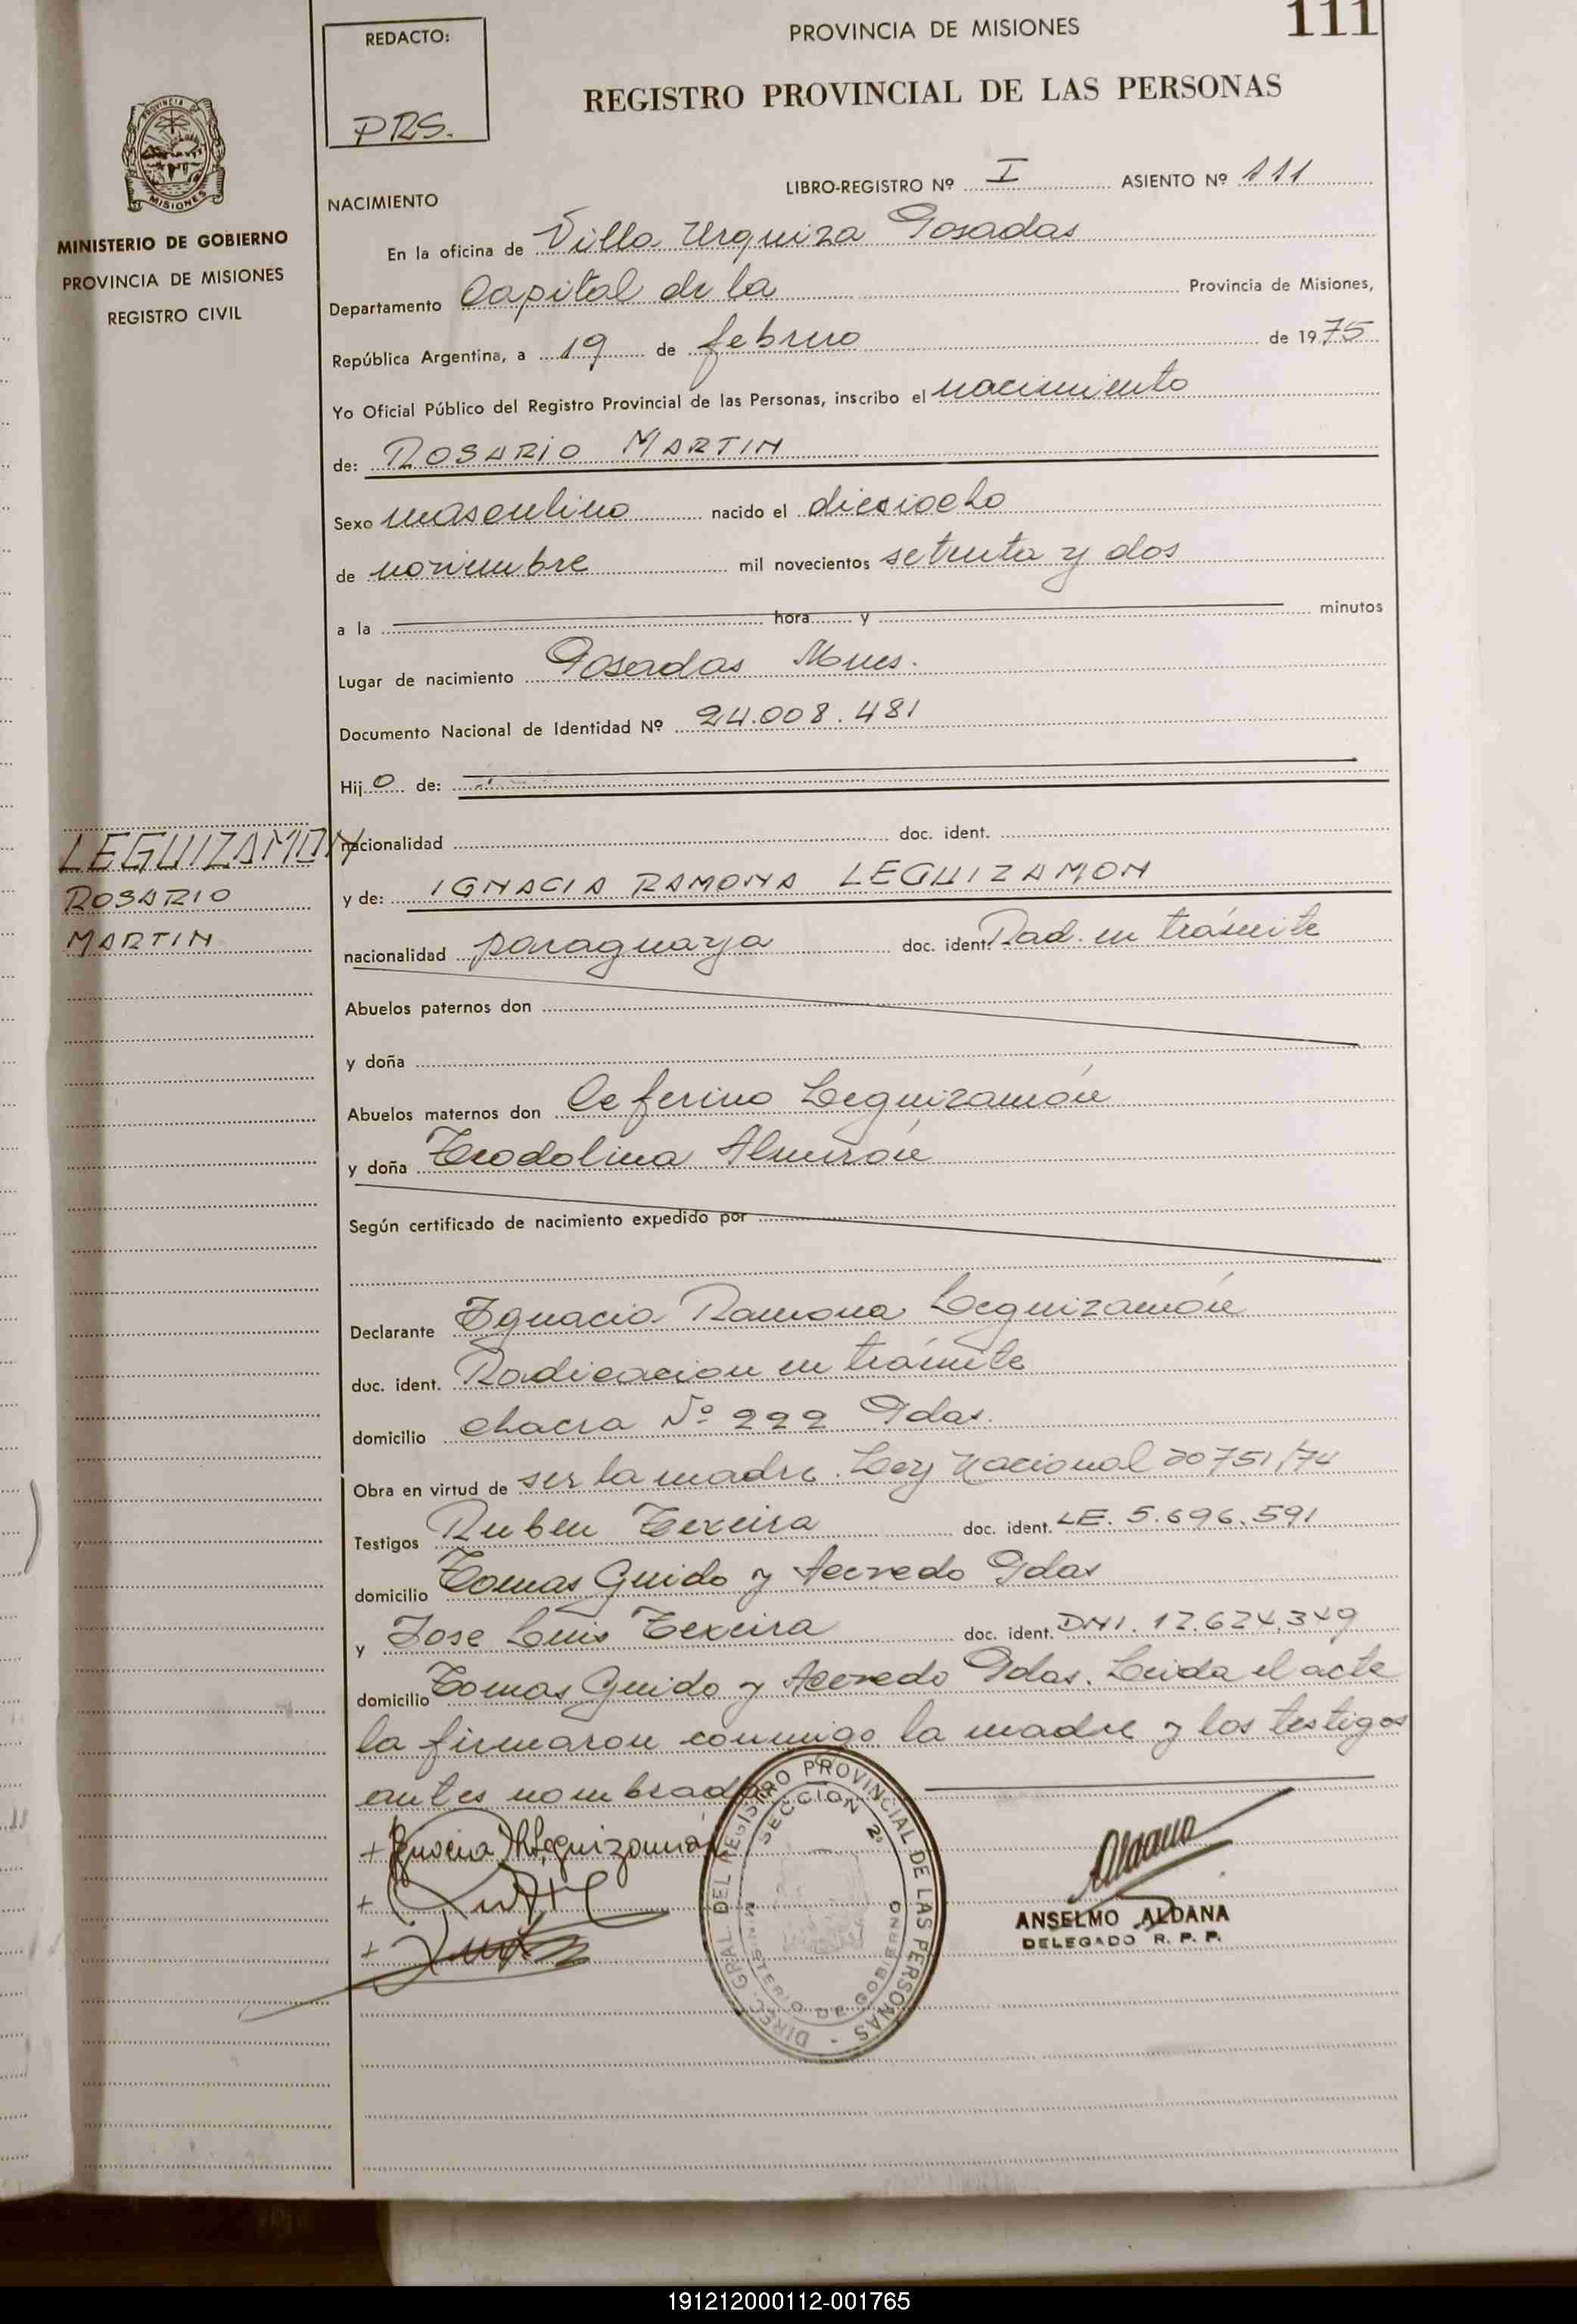 REDACTO:
PRS.
PROVINCIA DE MISIONES
111
REGISTRO PROVINCIAL DE LAS PERSONAS
PROVINCIA DE
MISIONES
MINISTERIO DE GOBIERNO
PROVINCIA DE MISIONES
REGISTRO CIVIL
LIBRO-REGISTRO Nº I ASIENTO Nº 111
NACIMIENTO
En la oficina de Villa Urquiza Posadas
Departamento Capital de la Provincia de Misiones,
República Argentina, a 19 de febrero de 1975
Yo Oficial Público del Registro Provincial de las Personas, inscribo el nacimiento
de: ROSARIO MARTIN
Sexo masculino nacido el dieciocho
de noviembre mil novecientos setenta y dos
a la hora y minutos
Lugar de nacimiento Posadas Mnes.
Documento Nacional de Identidad Nº 24.008.481
Hijo de:
nacionalidad doc. ident.
LEGUIZAMON
ROSARIO
MARTIN
y de: IGNACIA RAMONA LEGUIZAMON
nacionalidad paraguaya doc. ident. Rad. en trámite
Abuelos paternos don
y doña
Abuelos maternos don Ceferino Leguizamón
y doña Teodolina Almirón
Según certificado de nacimiento expedido por
Declarante Ignacia Ramona Leguizamón
doc. ident. Radicacion en trámite
domicilio chacra Nº 222 Pdas.
Obra en virtud de ser la madre. Ley Nacional 20751/74
Testigos Ruben Texeira doc. ident. LE. 5.696.591
domicilio Tomas Guido y Acevedo Pdas
y Jose Luis Texeira doc. ident. DNI. 17.624.349
domicilio Tomas Guido y Acevedo Pdas. Leida el acta
la firmaron conmigo la madre y los testigos
antes nombrados
+ Ignacia R Leguizamón
+
+
DIREC. GRAL. DEL REGISTRO PROVINCIAL DE LAS PERSONAS -
SECCION 2ª
MINISTERIO DE GOBIERNO
Aldana
ANSELMO ALDANA
DELEGADO R. P. P.
191212000112-001765